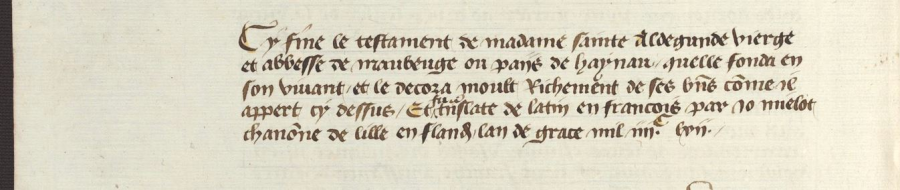 Cy fine le testament de madame sainte Aldegunde vierge
et abbesse de maubeuge ou pays de haynau quelle fonda en
son viuant / et le decora moult Richemẽt de ses bñs cõme il
appert cy dessus / Et trãslate de latin en francois par Jo mielot
chanoñe de lille en fland̃ / lan de grace mil iiijᶜ lvij.